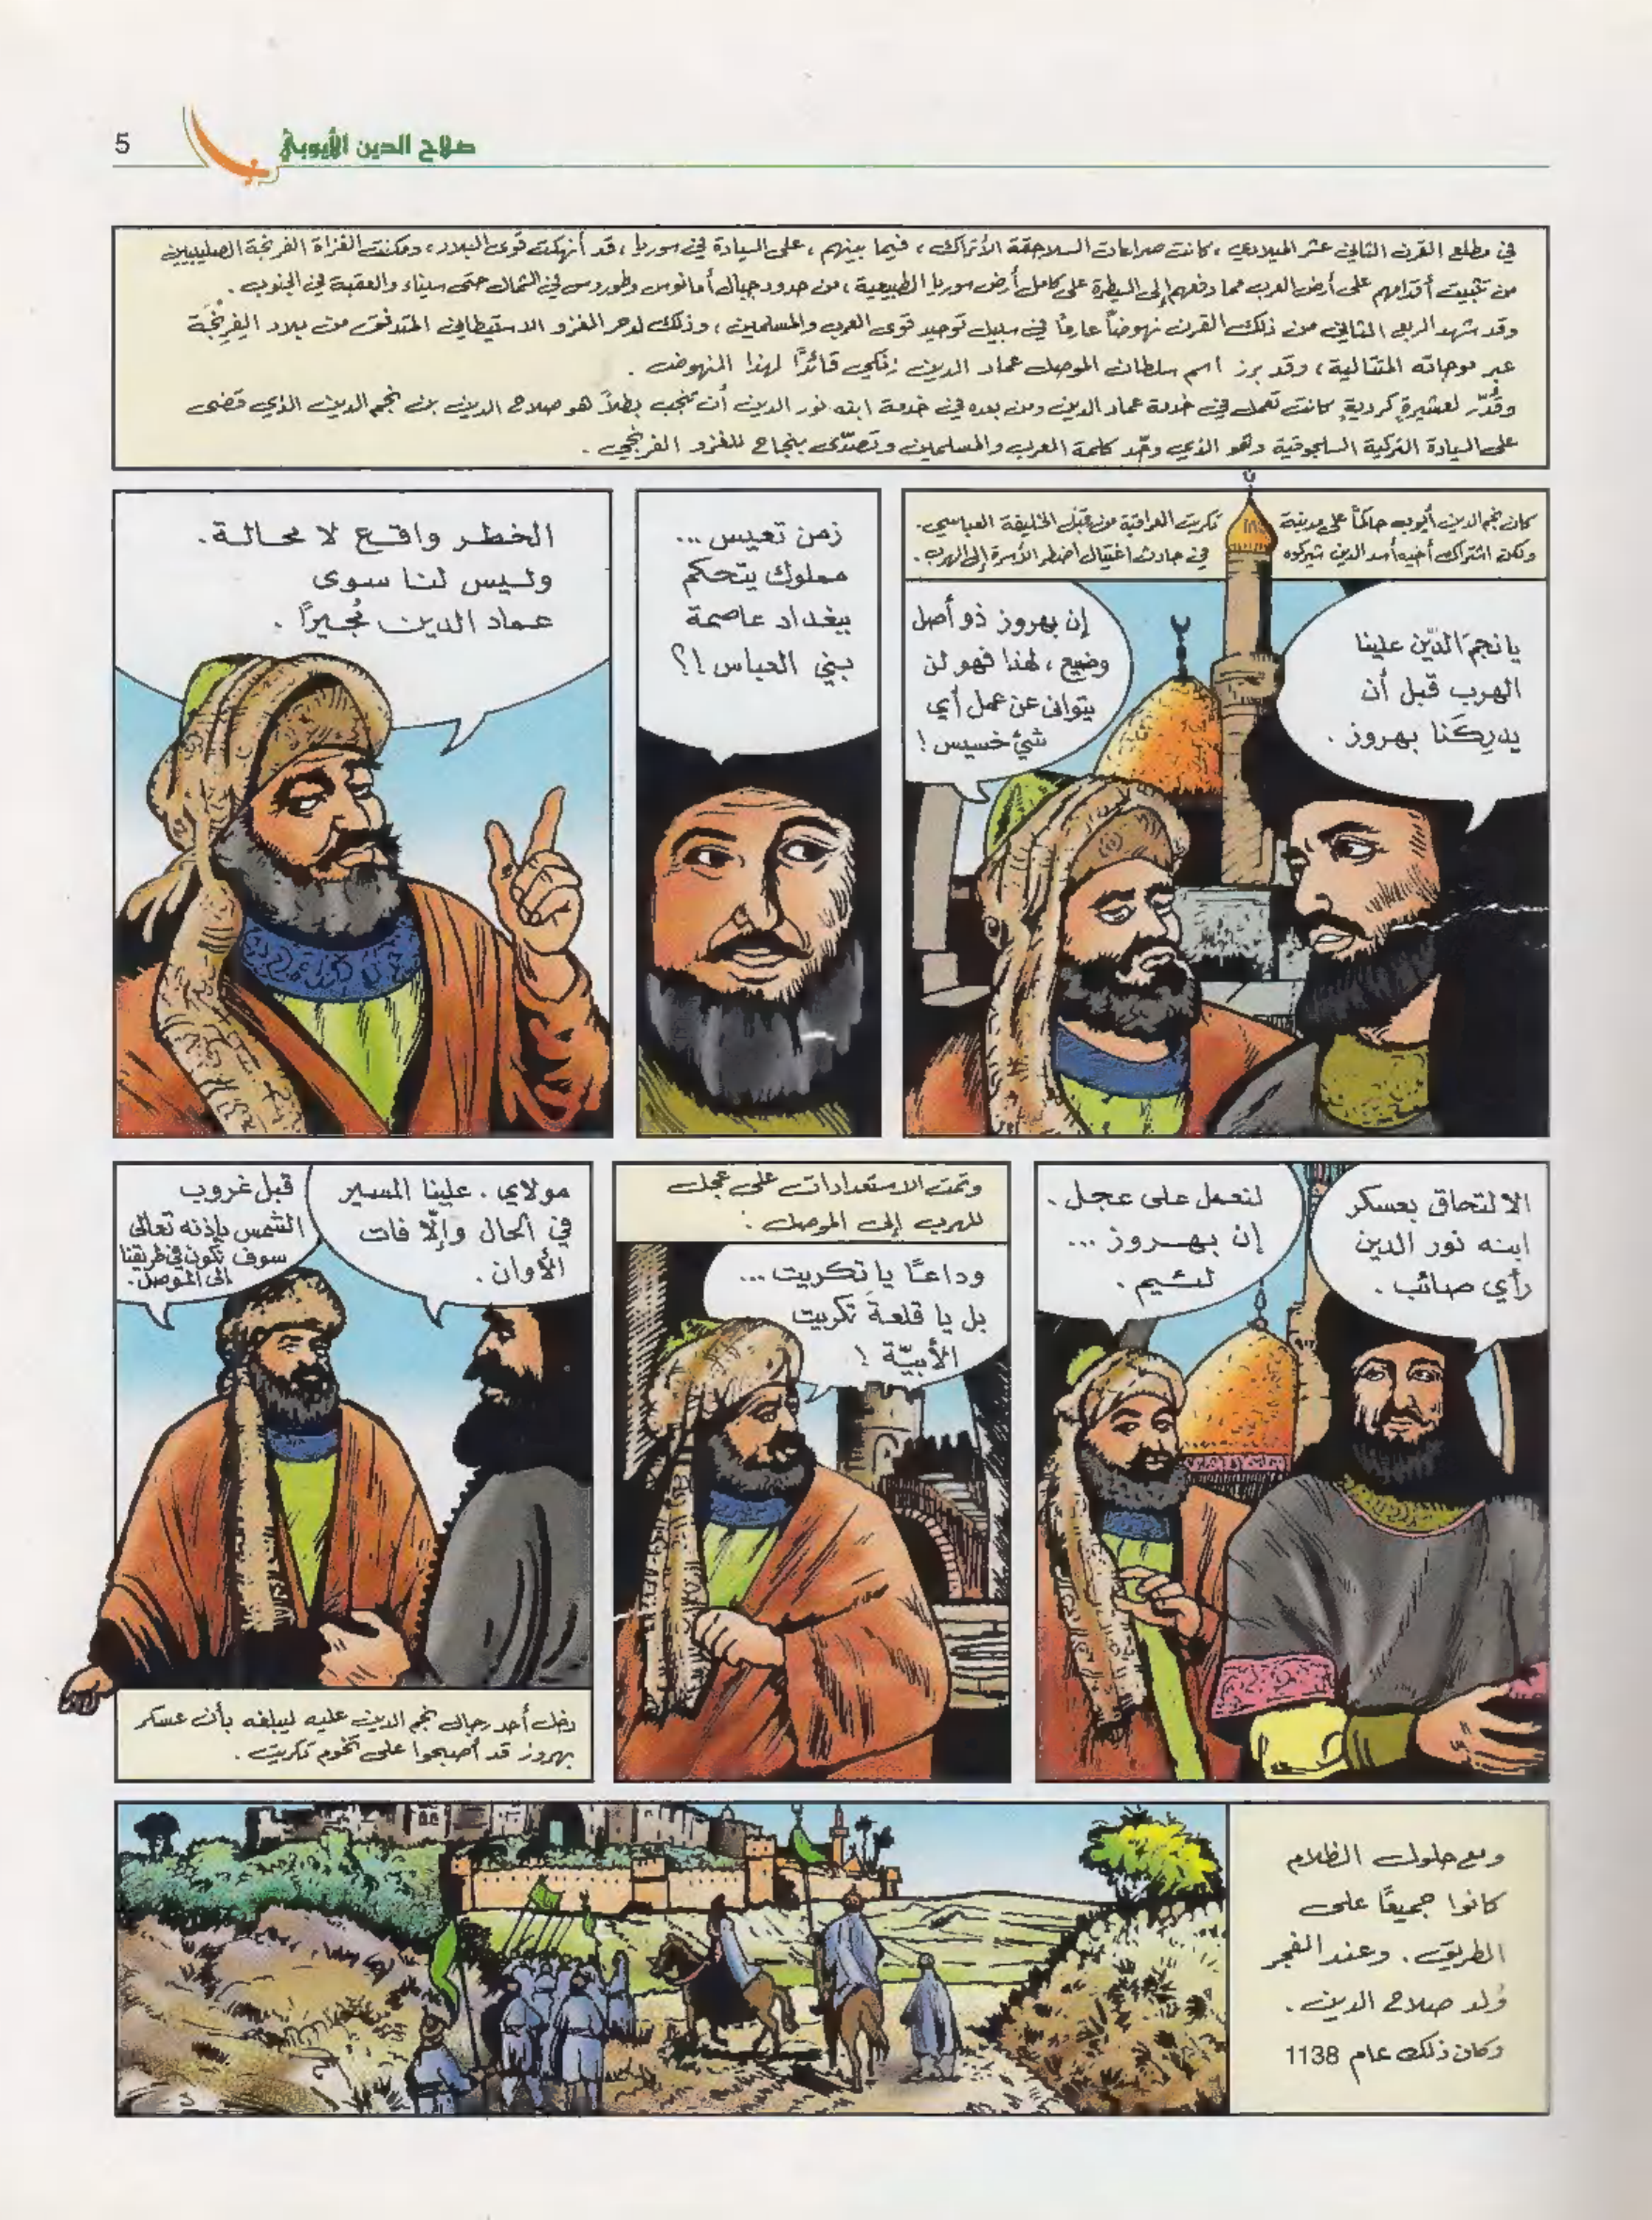 5
صلاح الدين الأيوبي
في مطلع القرن الثاني عشر الميلادي، كانت صراعات السلاجقة الأتراك، فيما بينهم، على السيادة في سوريا، قد أنهكت قوى البلاد، ومكنت الغزاة الفرنجة الصليبيين
من تثبيت أقدامهم على أرض العرب مما دفعهم إلى السيطرة على كامل أرض سوريا الطبيعية، من حدود جبال أمانوس وطوروس في الشمال حتى سيناء والعقبة في الجنوب.
وقد شهد الربع الثاني من ذلك القرن نهوضاً عارماً في سبيل توحيد قوى العرب والمسلمين، وذلك لدحر الغزو الاستيطاني المتدفق من بلاد الفرنجة
عبر موجاته المتتالية، وقد برز اسم سلطان الموصل عماد الدين زنكي قائدًا لهذا النهوض.
وقُدّر لعشيرةٍ كرديةٍ كانت تعمل في خدمة عماد الدين ومن بعده في خدمة ابنه نور الدين أن تنجب بطلاً هو صلاح الدين بن نجم الدين الذي قضى
على السيادة التركية السلجوقية وهو الذي وحّد كلمة العرب والمسلمين وتصدّى بنجاح للغزو الفرنجي.
كان نجم الدين أيوب حاكماً على مدينة تكريت العراقية من قبل الخليفة العباسي.
ولكن اشتراك أخيه أسد الدين شيركوه في حادث اغتيال اضطر الأسرة إلى الهرب.
يا نجمَ الدّين علينا
الهرب قبل أن
يدرِكَنا بهروز.
إن بهروز ذو أصل
وضيع، لهذا فهو لن
يتوانى عن عمل أي
شيء خسيس!
زمن تعيس...
مملوك يتحكم
ببغداد عاصمة
بني العباس!؟
الخطر واقع لا محالة.
وليس لنا سوى
عماد الدين مُجيرًا.
الالتحاق بعسكر
ابنه نور الدين
رأي صائب.
لنعمل على عجل.
إن بهروز...
لئيم.
وتمت الاستعدادات على عجل
للهرب إلى الموصل:
وداعًا يا تكريت...
بل يا قلعةَ تكريت
الأبيّة!
مولاي. علينا المسير
في الحال وإلّا فات
الأوان.
قبل غروب
الشمس بإذنه تعالى
سوف نكون في طريقنا
إلى الموصل.
دخل أحد رجال نجم الدين عليه ليبلغه بأن عسكر
بهروز قد أصبحوا على تخوم تكريت.
ومع حلول الظلام
كانوا جميعًا على
الطريق. وعند الفجر
وُلد صلاح الدين.
وكان ذلك عام 1138